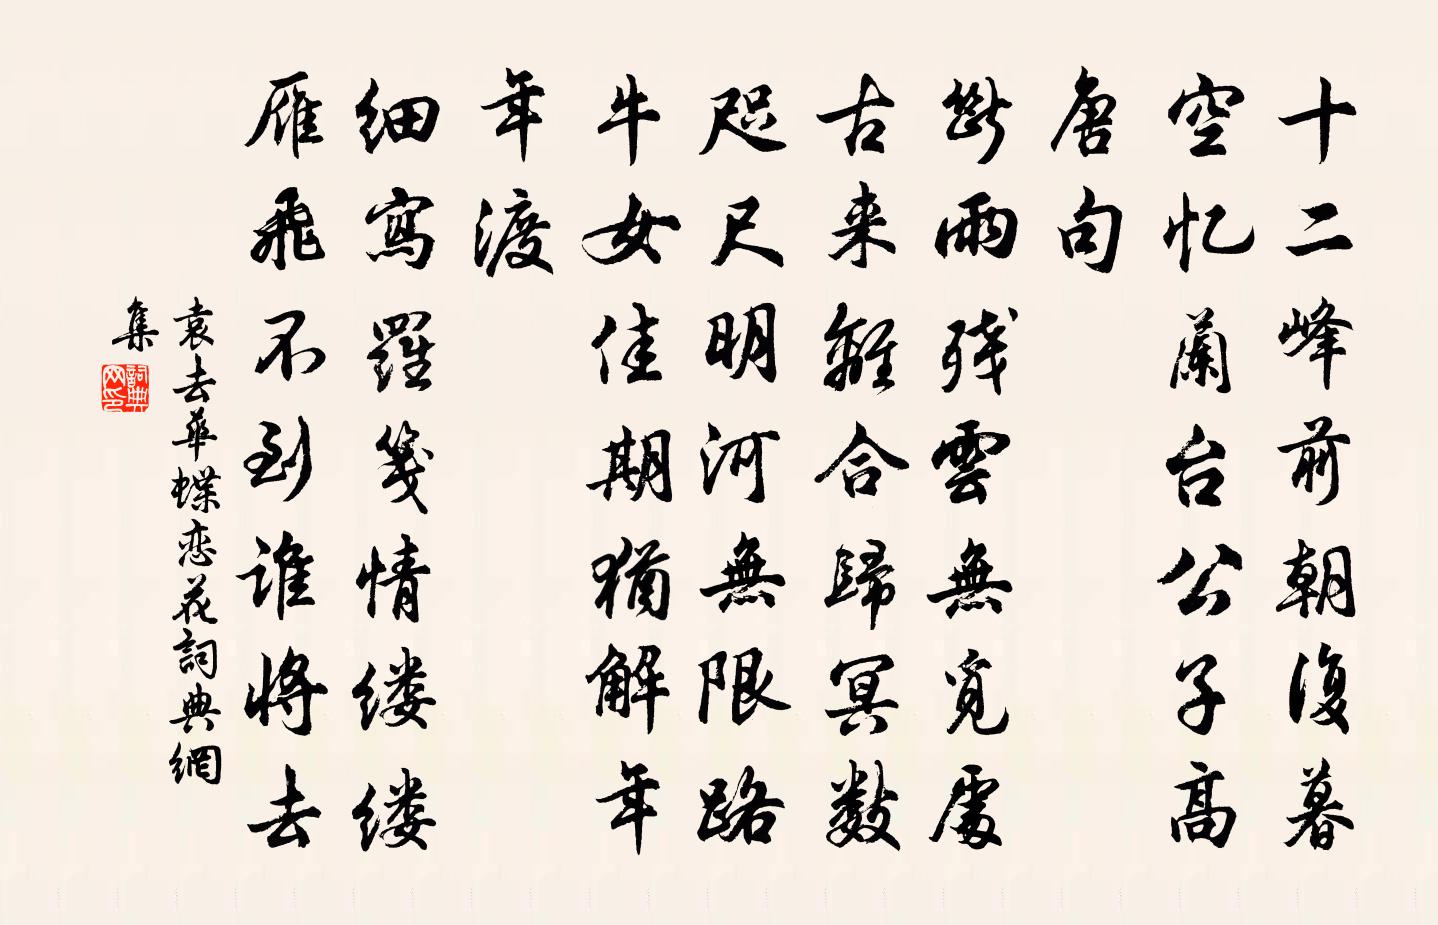 十二峰前朝復暮
空忆蘭台公子高
唐句
斷雨残雲無覓處
古来離合歸冥數
咫尺明河無限路
牛女佳期猶解年
年渡
細寫羅箋情缕缕
雁飛不到誰將去
袁去華蝶恋花詞典網
集
詞典
网印